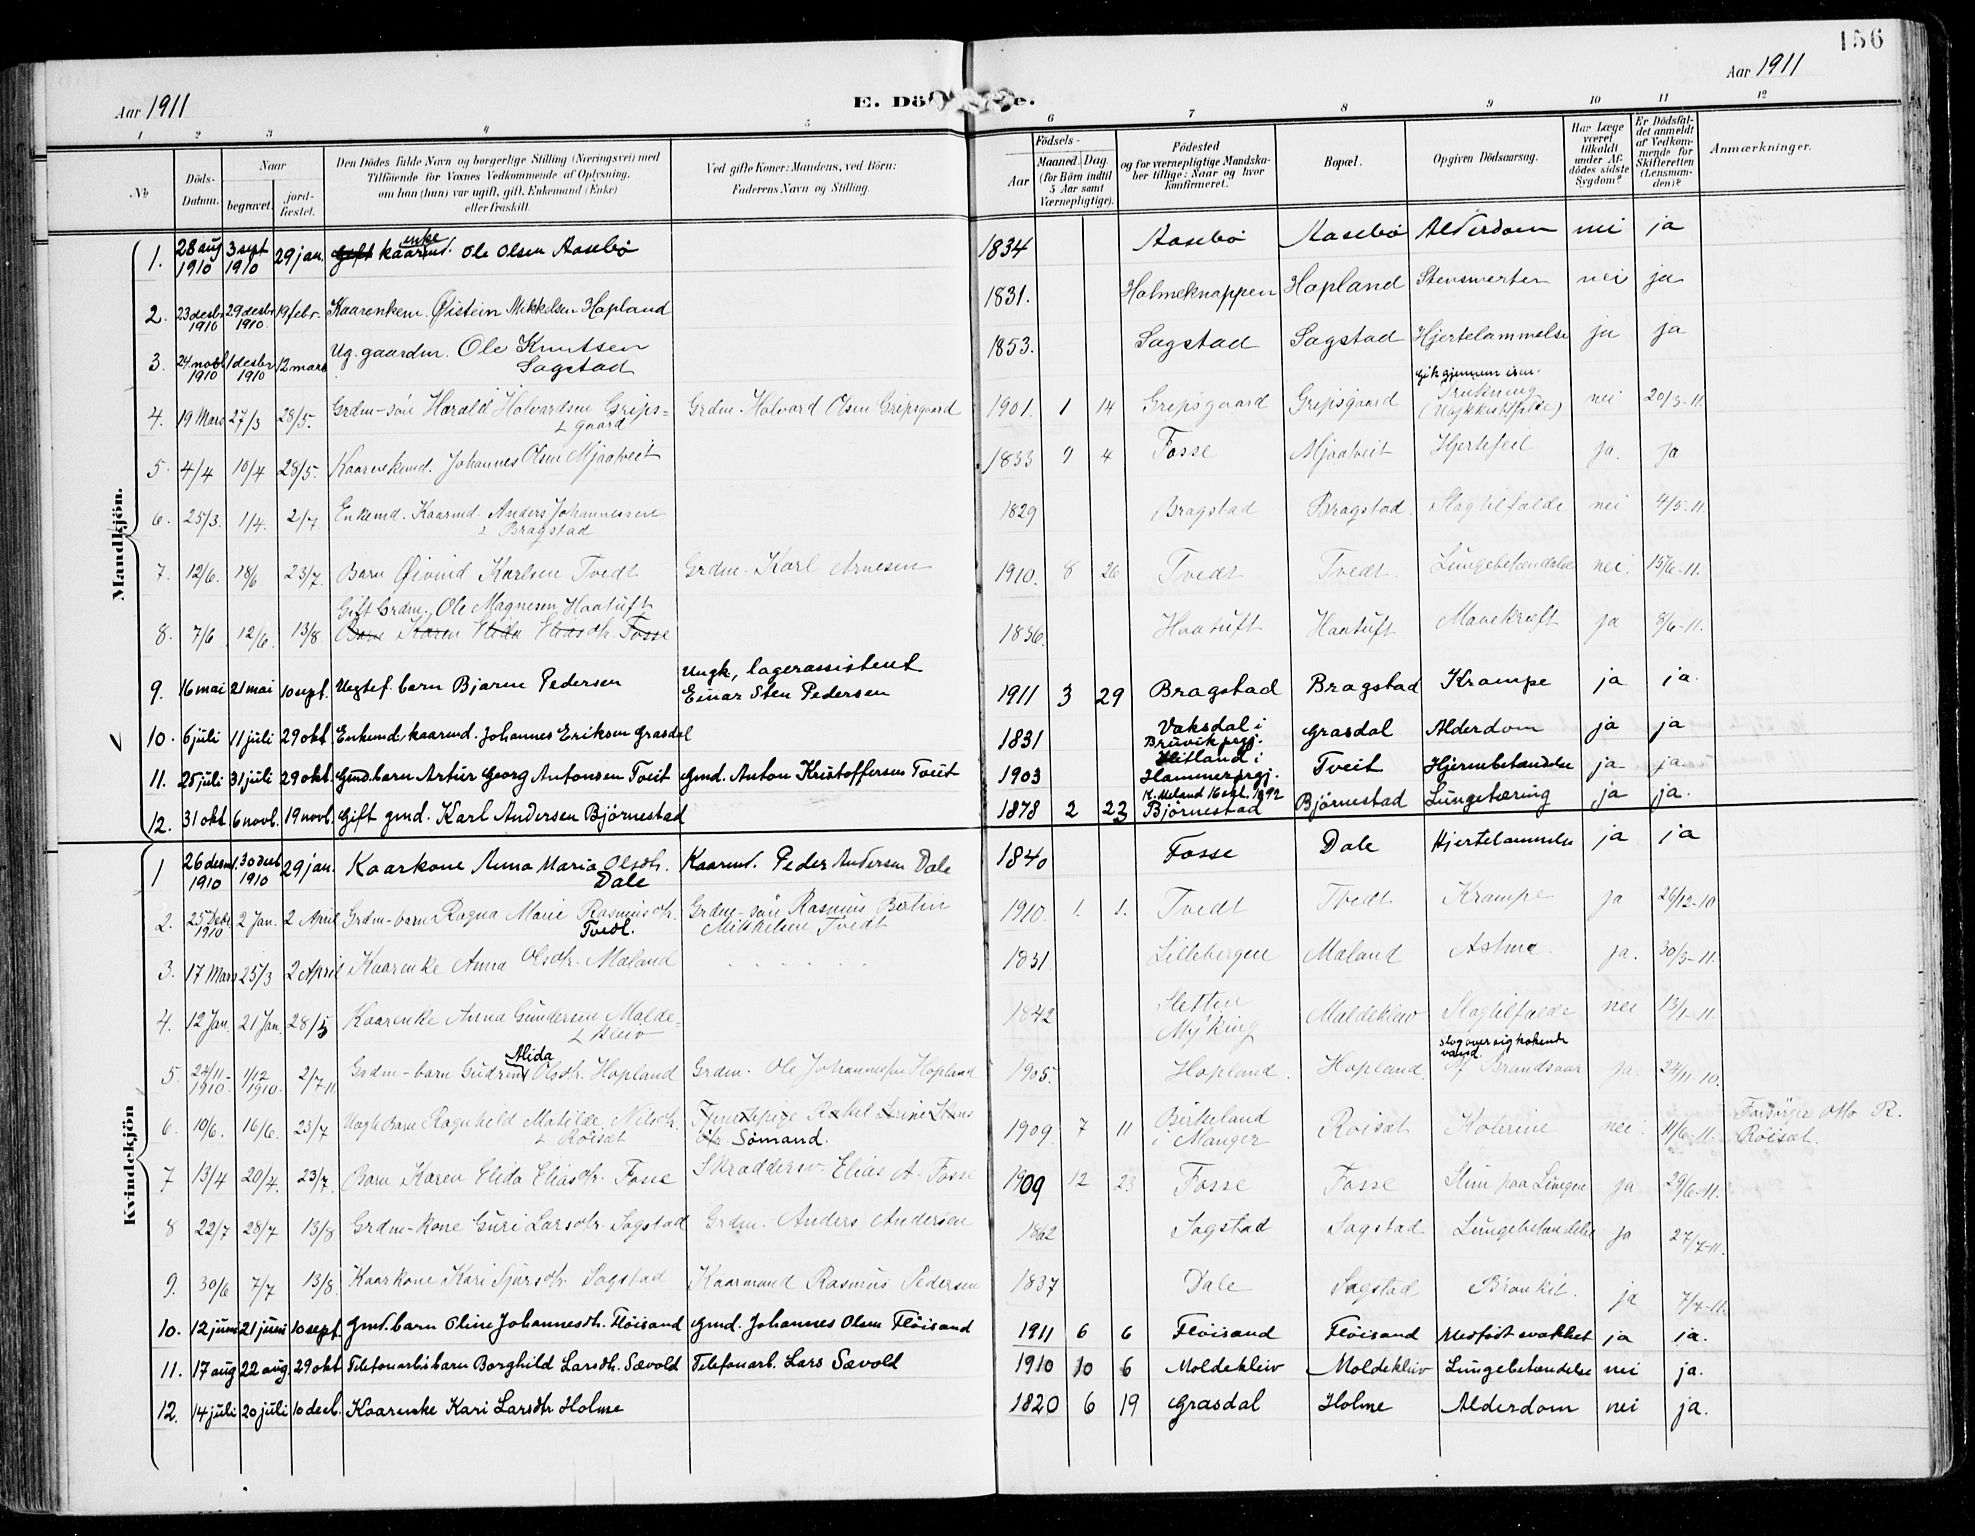 156
Aar 1911
Aar 1911
E. Dö e.
1 2 3 4 5 6 7 8 9 10 11 12
No
Döds-Datum.
Naar
begravet.
jord-fæstet.
Den Dödes fulde Navn og borgerlige Stilling (Næringsvei) med
Tilföiende for Voxnes Vedkommende af Oplysning,
om han (hun) var ugift, gift, Enkemand (Enke)
eller fraskilt.
Ved gifte Koner: Mandens, ved Börn:
Faderens Navn og Stilling.
Födsels-
Aar
Maaned. Dag.
(for Börn indtil
5 Aar samt
Værnepligtige).
Födested
og for værnepligtige Mandska-
ber tillige: Naar og hvor
konfirmeret.
Bopæl.
Opgiven Dödsaarsag.
Har Læge
været
tilkaldt
under Af-
dödes sidste
Sygdom?
Er Dödsfal-
det anmeldt
af Vedkom-
mende for
Skifteretten
(Lensman-
den)?
Anmærkninger.
Mandkjön.
1. 28 aug 1910 3 sept 1910 29 jan. Gift enke kaarmd. Ole Olsen Aasebø 1834 Aasebø Aasebø Alderdom nei ja
2. 23 desbr 1910 29 desbr 1910. 19 febr. Kaarenkem. Øistein Mikkelsen Hopland 1831. Holmeknappen Hopland Stensmerter nei ja
3. 24 novbr 1910 1 desbr 1910 12 mars Ug. gaardm. Ole Knutsen Sagstad 1853. Sagstad Sagstad Hjertelammelse ja ja
4. 19 Mars 27/3 28/5. Grdm-sön Harald Halvardsen Grips=gaard Grdm. Halvard Olsen Gripsgaard 1901. 1 14 Gripsgaard Gripsgaard Gik gjennem isen. Drukning (Ulykkestilfælde) nei 20/3-11.
5. 4/4 10/4 28/5. Kaarenkemd. Johannes Olsen Mjaatveit 1833 9 4 Fosse Mjaatveit Hjertefeil ja. ja
6. 25/3. 1/4. 2/7 Enkemd. Kaarmd. Anders Johannessen Bragstad 1829 Bragstad Bragstad. Slagtilfælde nei 4/5-11.
7. 12/6. 18/6. 23/7. Barn Øivind Karlsen Tvedt Grdm. Karl Arnesen 1910. 8 26 Tvedt Tvedt. Lungebetændelse nei. 15/6-11.
8. 7/6 12/6. 13/8 Gift Grdm. Ole Magnesen Haatuft Barn Karen Elida Eliasdtr. Fosse 1836. Haatuft Haatuft Mavekræft ja 8/6-11.
9. 16 mai 21 mai 10 sept. Uegtef. barn Bjarne Pedersen Ungk, lagerassistent Einar Sten Pedersen 1911 3 29 Bragstad Bragstad Krampe ja ja.
10. 6 juli 11 juli 29 okt Enkemd. kaarmd. Johannes Eriksen Grasdal 1831 Vaksdal i Bruvik prgj. Grasdal Alderdom ja ja
11. 25 juli 31 juli 29 okt. Gmd. barn Artur Georg Antonsen Tveit Gmd. Anton Kristoffersen Tveit 1903 Hitland i Hammer prgj. Tveit Hjernebetændelse ja ja.
12. 31 okt 6 novb. 19 novb. Gift gmd. Karl Andersen Bjørnestad 1878 2 23 K. Meland 16 okt. 1892 Bjørnestad Bjørnestad Lungetæring ja ja.
Kvindekjön
1 26 desmb. 1910 30 desb 1910 29 jan. Kaarkone Anna Maria Olsdtr. Dale Kaarmd. Peder Andersen Dale 1840 Fosse Dale Hjertelammelse ja ja
2. 25 Debr. 1910 2 Jan. 2 April Grdm-barn Ragna Marie Rasmusdtr. Tvedt. Grdm-sön Rasmus Mikkelsen Tvedt 1910. 1. 1. Tvedt Tvedt Krampe ja 26/12-10
3. 17 Mars 25/3 2 April Kaarenke Anna Olsdtr. Maland 1831 Lillebergen Maland Astma. ja. 30/3-11.
4. 12 Jan. 21 Jan. 28/5 Kaarenke Anna Gundersen Molde=kleiv 1842 Sletten Myking Moldekleiv Slagtilfælde nei 13/1-11.
5. 24/11-1910. 1/12 1910. 2/7 11. Grdm-barn Gudrun Alida Olsdtr. Hopland Grdm. Ole Johannessen Hopland 1905. Hopland. Hopland. slog over sig kokende vand. Af Brandsaar ja. 24/11-10.
6. 10/6. 16/6. 23/7 Uegte Barn Ragnhild Matilde Nilsdtr. Röisæt Tjenestepige Rakel Serine Sömand. 1909. 7 11 Birkeland i Manger Röisæt Kolerine nei. 11/6-11. Forsörger Otto R. Röisæt.
7 13/4 20/4. 23/7. Barn Karen Elida Eliasdtr. Fosse Skræddersv. Elias A. Fosse 1909 12 23 Fosse Fosse Slim paa Lungen ja 29/6-11.
8 22/7 28/7 13/8 Grdm-kone Guri Larsdtr. Sagstad Grdm. Anders Andersen 1862 Sagstad Sagstad Lungebetændelse ja 27/7-11.
9. 30/6 7/7 13/8. Kaarkone Kari Sjursdtr. Sagstad Kaarmand Rasmus Pedersen 1837 Dale Sagstad Bronkit. ja 7/7-11.
10. 12 juni 21 juni 10 sept. Gmd. barn Oline Johannesdtr. Fløisand Gmd. Johannes Olsen Fløisand 1911 6 6 Fløisand Fløisand Medfødt svakhet ja ja.
11. 17 aug 22 aug. 29 okt Telefonarb. barn Borghild Larsdtr. Sævold Telefonarb. Lars Sævold 1910 10 6 Moldekleiv Moldekleiv Lungebetændelse nei ja.
12. 14 juli 20 juli 10 decb. Kaarenke Kari Larsdtr Holme 1820 6 19 Grasdal Holme Alderdom nei ja.